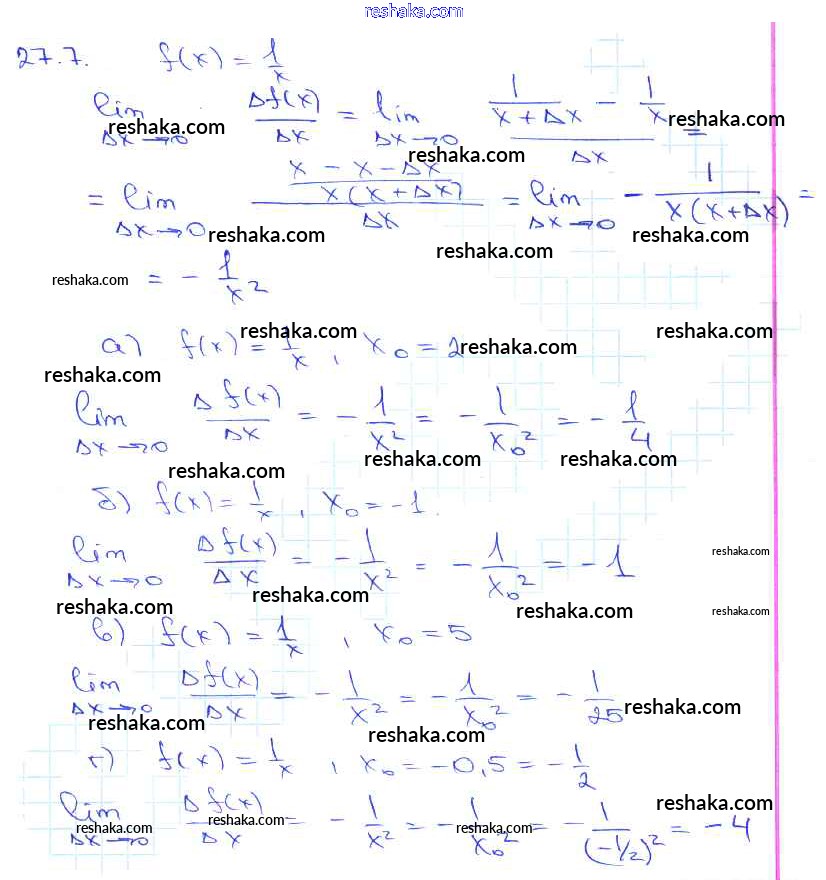 reshaka.com
27.7. f(x) = 1/x
lim Δx→0 Δf(x)/Δx = lim Δx→0 (1/(x+Δx) − 1/x)/Δx =
reshaka.com reshaka.com reshaka.com
= lim Δx→0 ((x − x − Δx)/(x(x+Δx)))/Δx = lim Δx→0 − 1/(x(x+Δx)) =
reshaka.com reshaka.com reshaka.com
reshaka.com = − 1/x²
reshaka.com reshaka.com
а) f(x) = 1/x, x₀ = 2 reshaka.com
reshaka.com
lim Δx→0 Δf(x)/Δx = − 1/x² = − 1/x₀² = − 1/4
reshaka.com reshaka.com reshaka.com
б) f(x) = 1/x, x₀ = −1.
lim Δx→0 Δf(x)/Δx = − 1/x² = − 1/x₀² = −1 reshaka.com
reshaka.com reshaka.com reshaka.com
в) f(x) = 1/x, x₀ = 5
lim Δx→0 Δf(x)/Δx = − 1/x² = − 1/x₀² = − 1/25 reshaka.com
reshaka.com reshaka.com
г) f(x) = 1/x, x₀ = −0,5 = −1/2
reshaka.com
lim Δx→0 Δf(x)/Δx = − 1/x² = − 1/x₀² = − 1/(−1/2)² = −4
reshaka.com reshaka.com reshaka.com